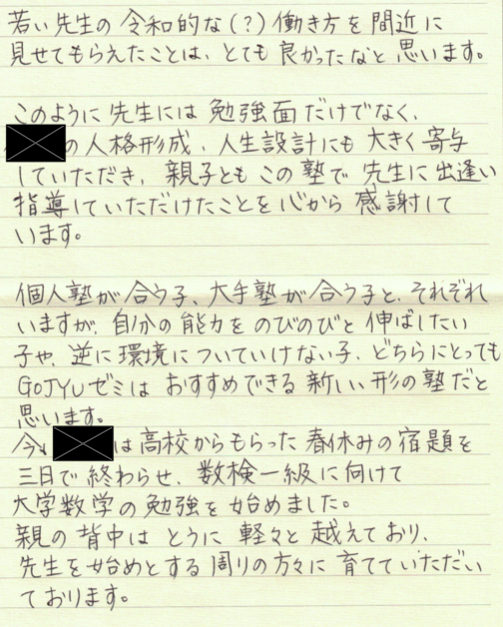 若い先生の令和的な(?)働き方を間近に
見せてもらえたことは、とても良かったなと思います。
このように先生には勉強面だけでなく、
の人格形成、人生設計にも大きく寄与
していただき、親子ともこの塾で先生に出逢い
指導していただけたことを心から感謝して
います。
個人塾が合う子、大手塾が合う子と、それぞれ
いますが、自分の能力をのびのびと伸ばしたい
子や、逆に環境についていけない子、どちらにとっても
GOJYUゼミはおすすめできる新しい形の塾だと
思います。
今、は高校からもらった春休みの宿題を
三日で終わらせ、数検一級に向けて
大学数学の勉強を始めました。
親の背中はとうに軽々と越えており、
先生を始めとする周りの方々に育てていただい
ております。